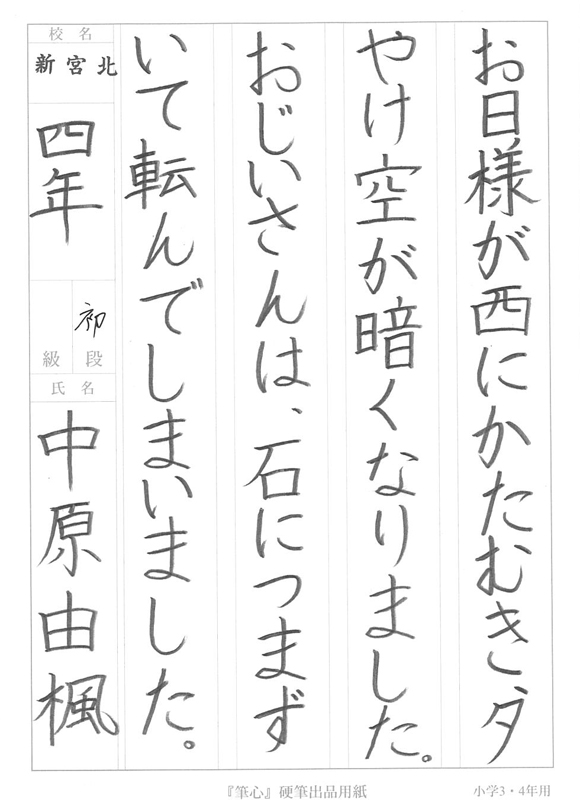 お日様が西にかたむき夕
やけ空が暗くなりました。
おじいさんは、石につまず
いて転んでしまいました。
校名
新宮北
四年
初
級 段
氏名
中原由楓
『筆心』硬筆出品用紙
小学3・4年用